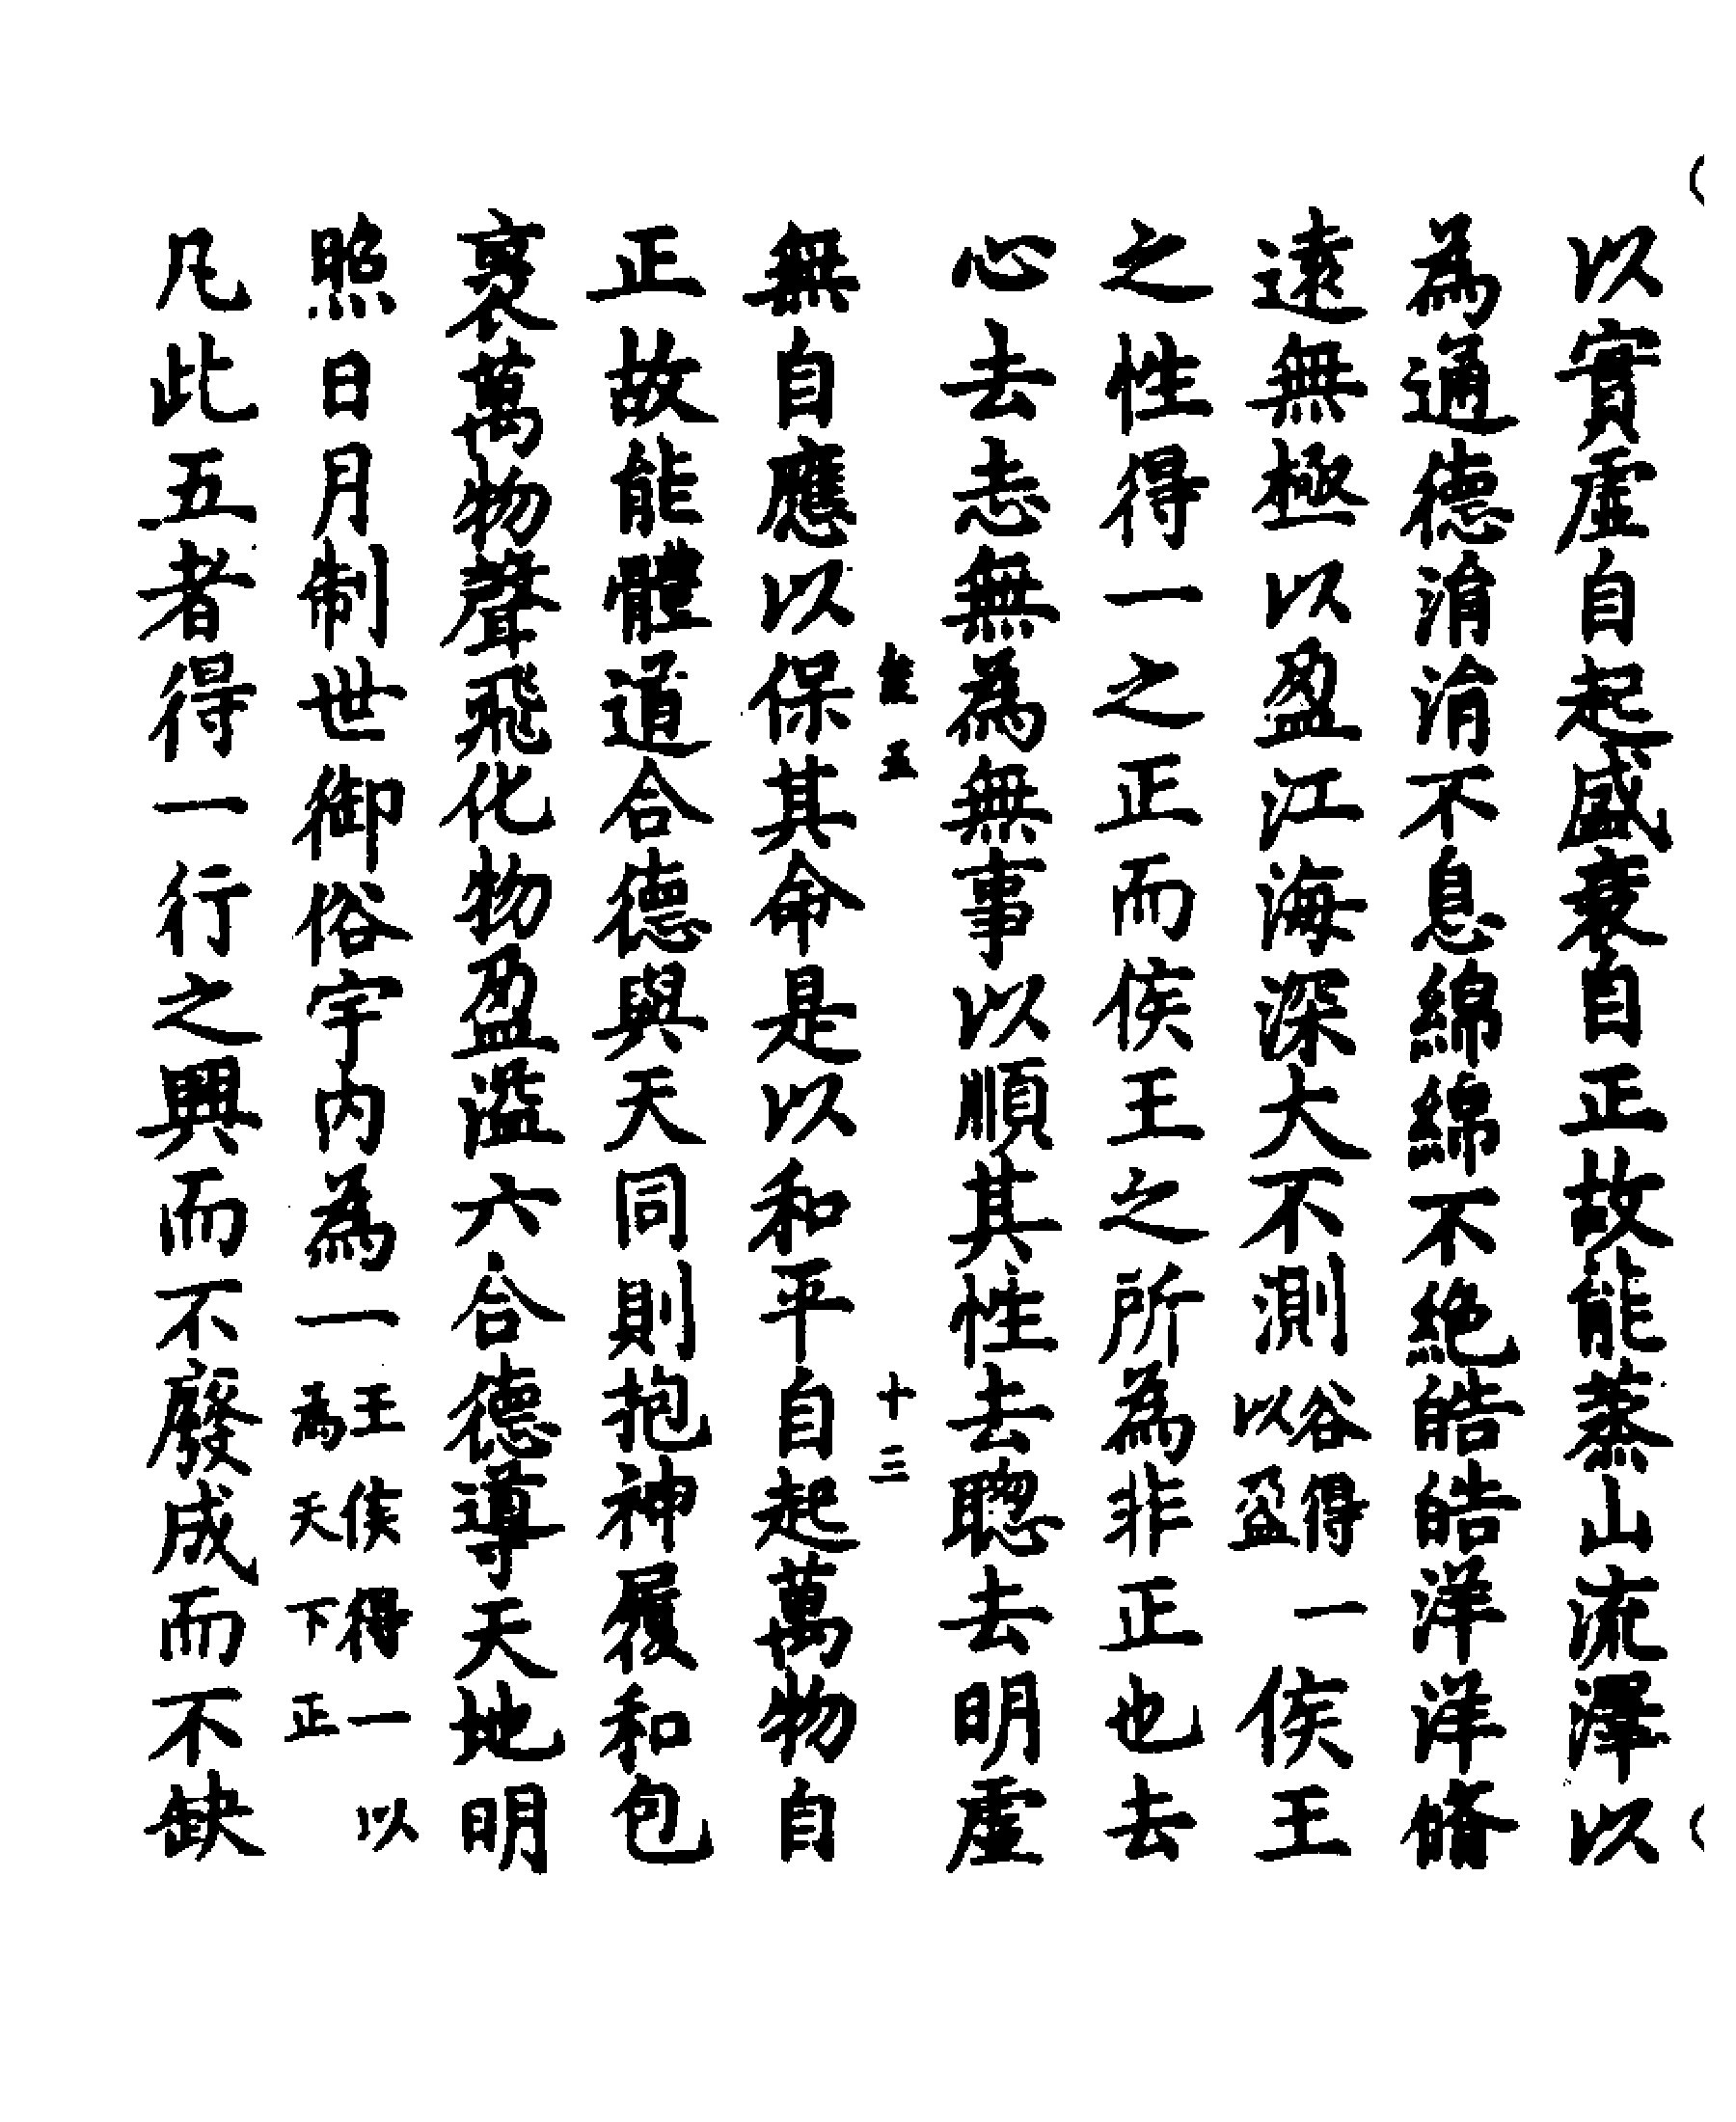 以實虛自起盛衰自正故能蒸山流澤以
為通德淯淯不息綿綿不絶皓皓洋洋脩
遠無極以盈江海深大不測谷得一以盈侯王
之性得一之正而侯王之所為非正也去
心去志無為無事以順其性去聰去明虛
十三
無自應以保其命是以和平自起萬物自
正故能體道合德與天同則抱神履和包
裹萬物聲飛化物盈溢六合德導天地明
照日月制世御俗宇內為一王侯得一以為天下正
凡此五者得一行之興而不廢成而不缺